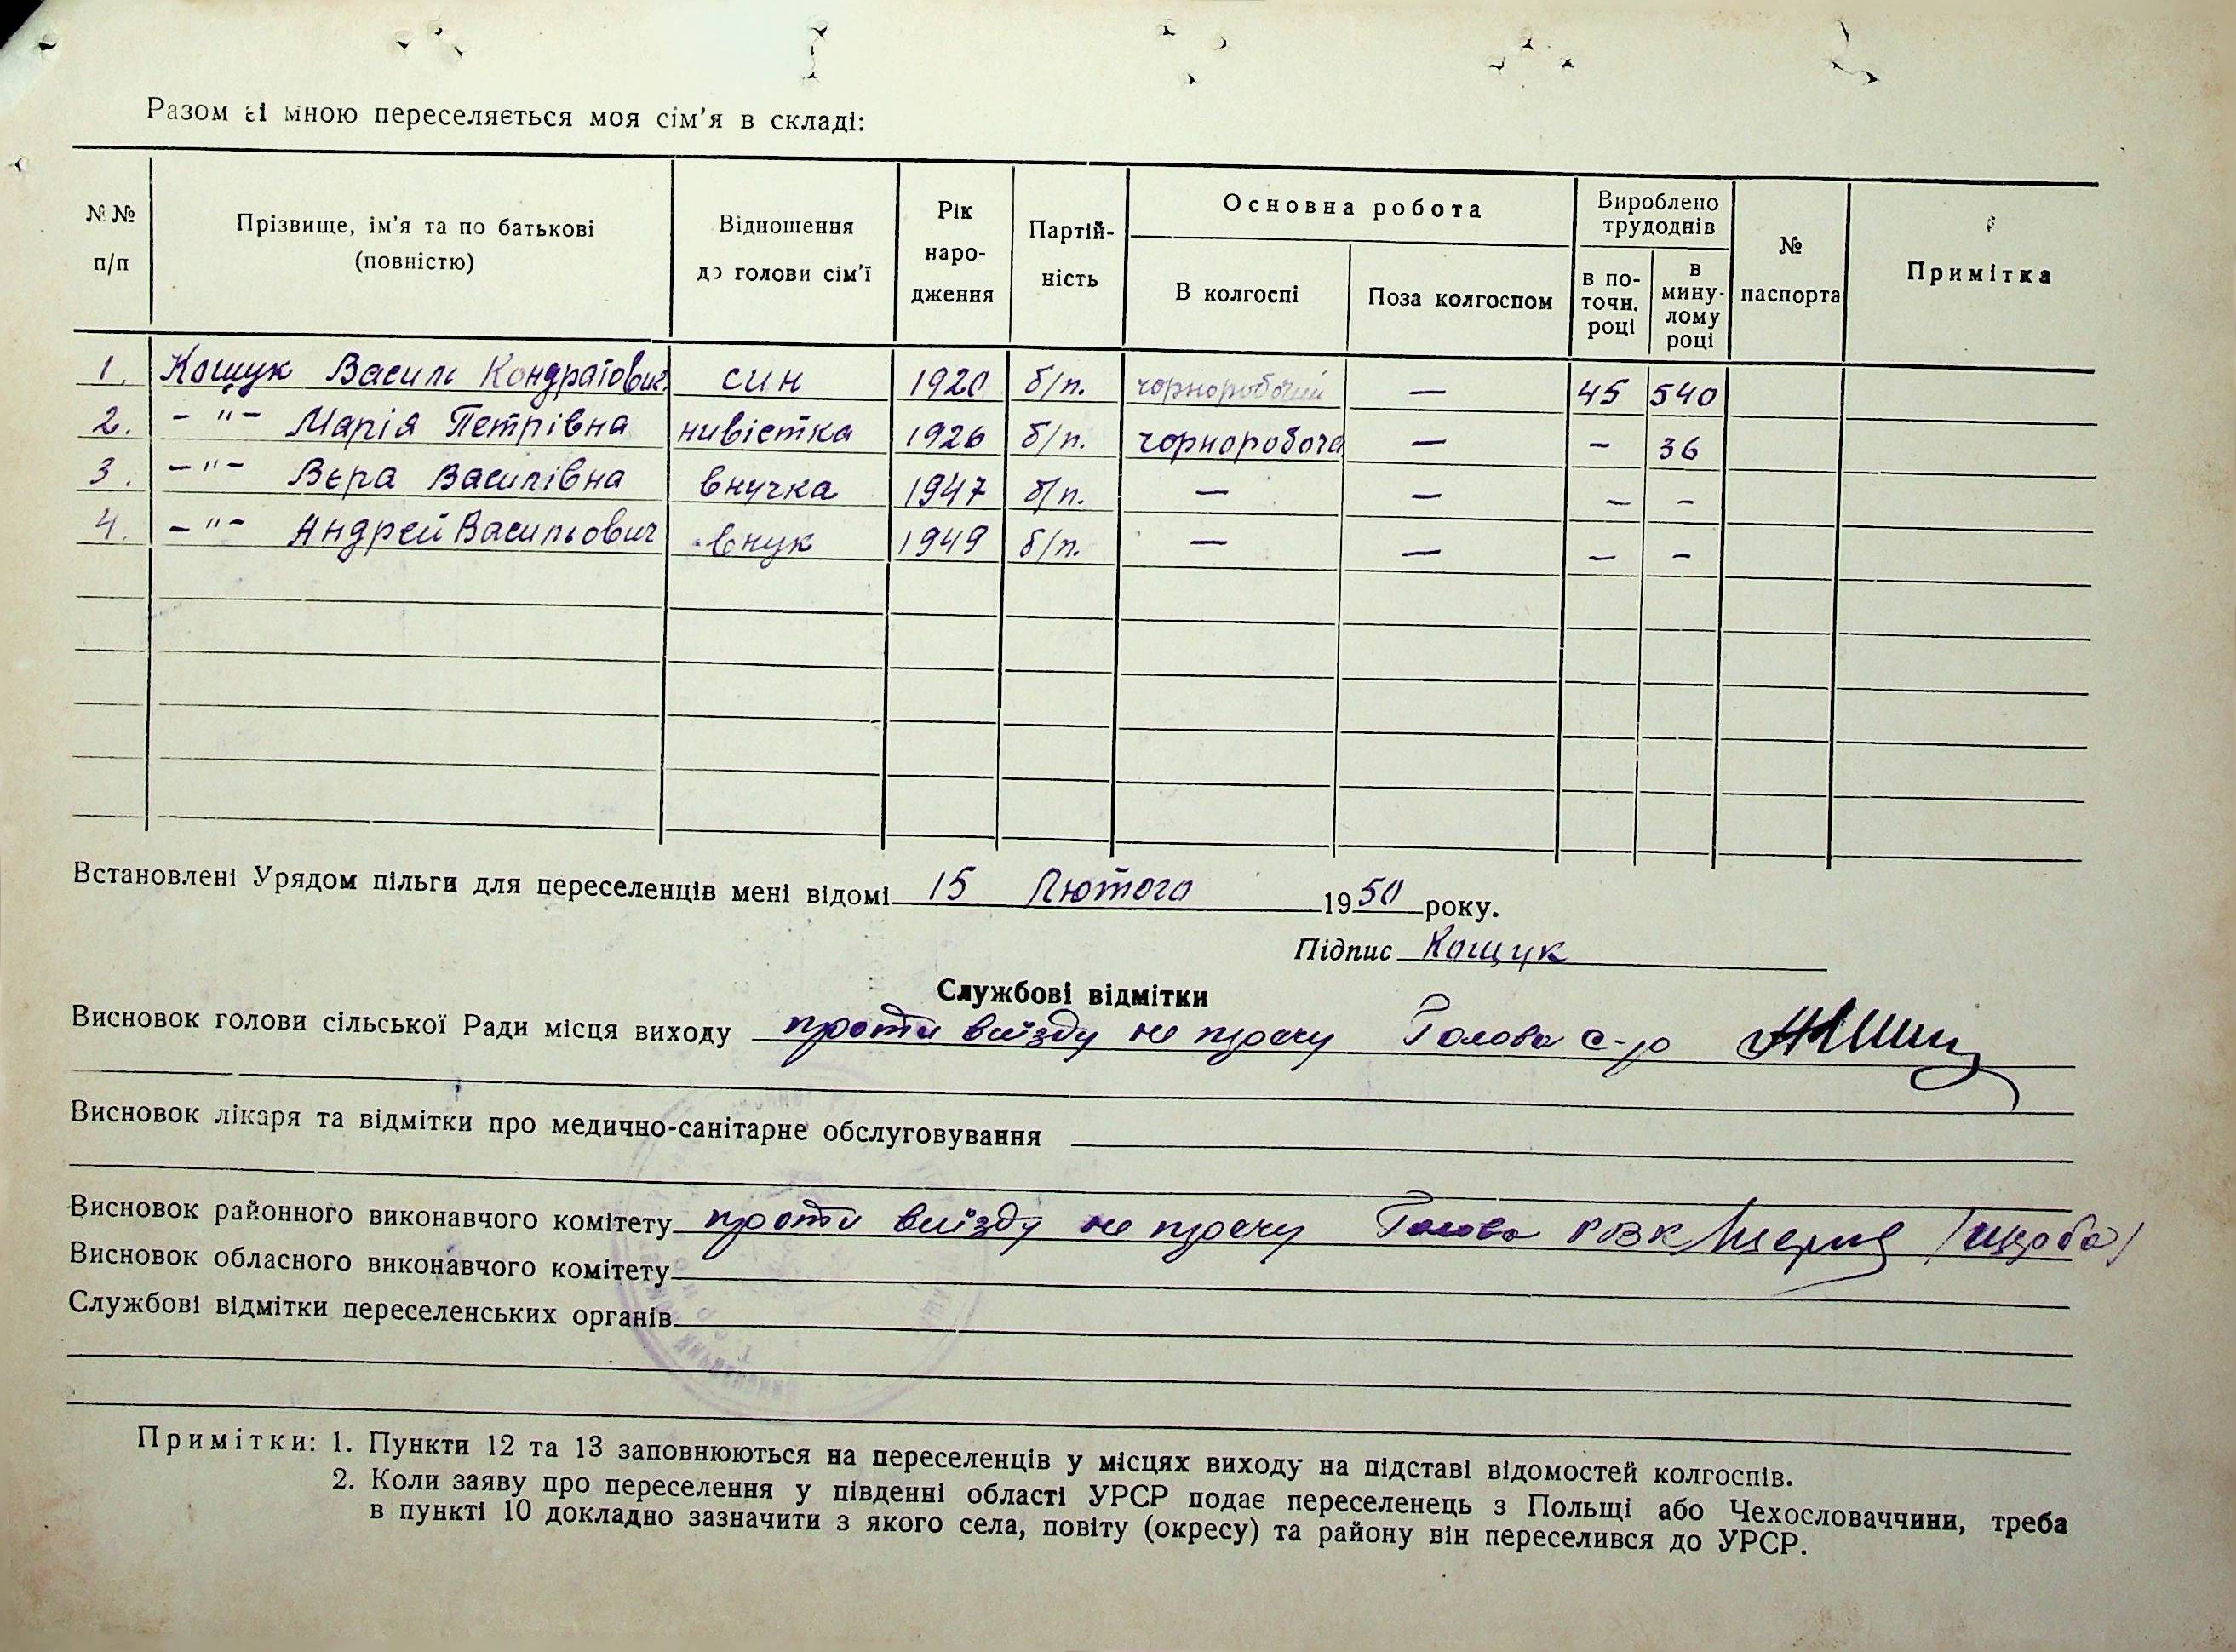 Разом зі мною переселяється моя сім'я в складі:
№№ п/п
Прізвище, ім'я та по батькові (повністю)
Відношення до голови сім'ї
Рік народження
Партій-ність
Основна робота
В колгоспі
Поза колгоспом
Вироблено трудоднів
в по-точн. році
в мину-лому році
№ паспорта
Примітка
1. Кощук Василь Кондратович син 1920 б/п. чорноробочий — 45 540
2. -"- Марія Петрівна нивістка 1926 б/п. чорноробоча — - 36
3. -"- Вєра Василівна внучка 1947 б/п. — — - -
4. -"- Андрей Васильович внук 1949 б/п. — — - -
Встановлені Урядом пільги для переселенців мені відомі 15 Лютого 1950 року.
Підпис Кощук
Службові відмітки
Висновок голови сільської Ради місця виходу проти виїзду не прочу Голова с-р
Висновок лікаря та відмітки про медично-санітарне обслуговування
Висновок районного виконавчого комітету проти виїзду не прочу Голова РВК /Щерба/
Висновок обласного виконавчого комітету
Службові відмітки переселенських органів
Примітки: 1. Пункти 12 та 13 заповнюються на переселенців у місцях виходу на підставі відомостей колгоспів.
2. Коли заяву про переселення у південні області УРСР подає переселенець з Польщі або Чехословаччини, треба
в пункті 10 докладно зазначити з якого села, повіту (окресу) та району він переселився до УРСР.